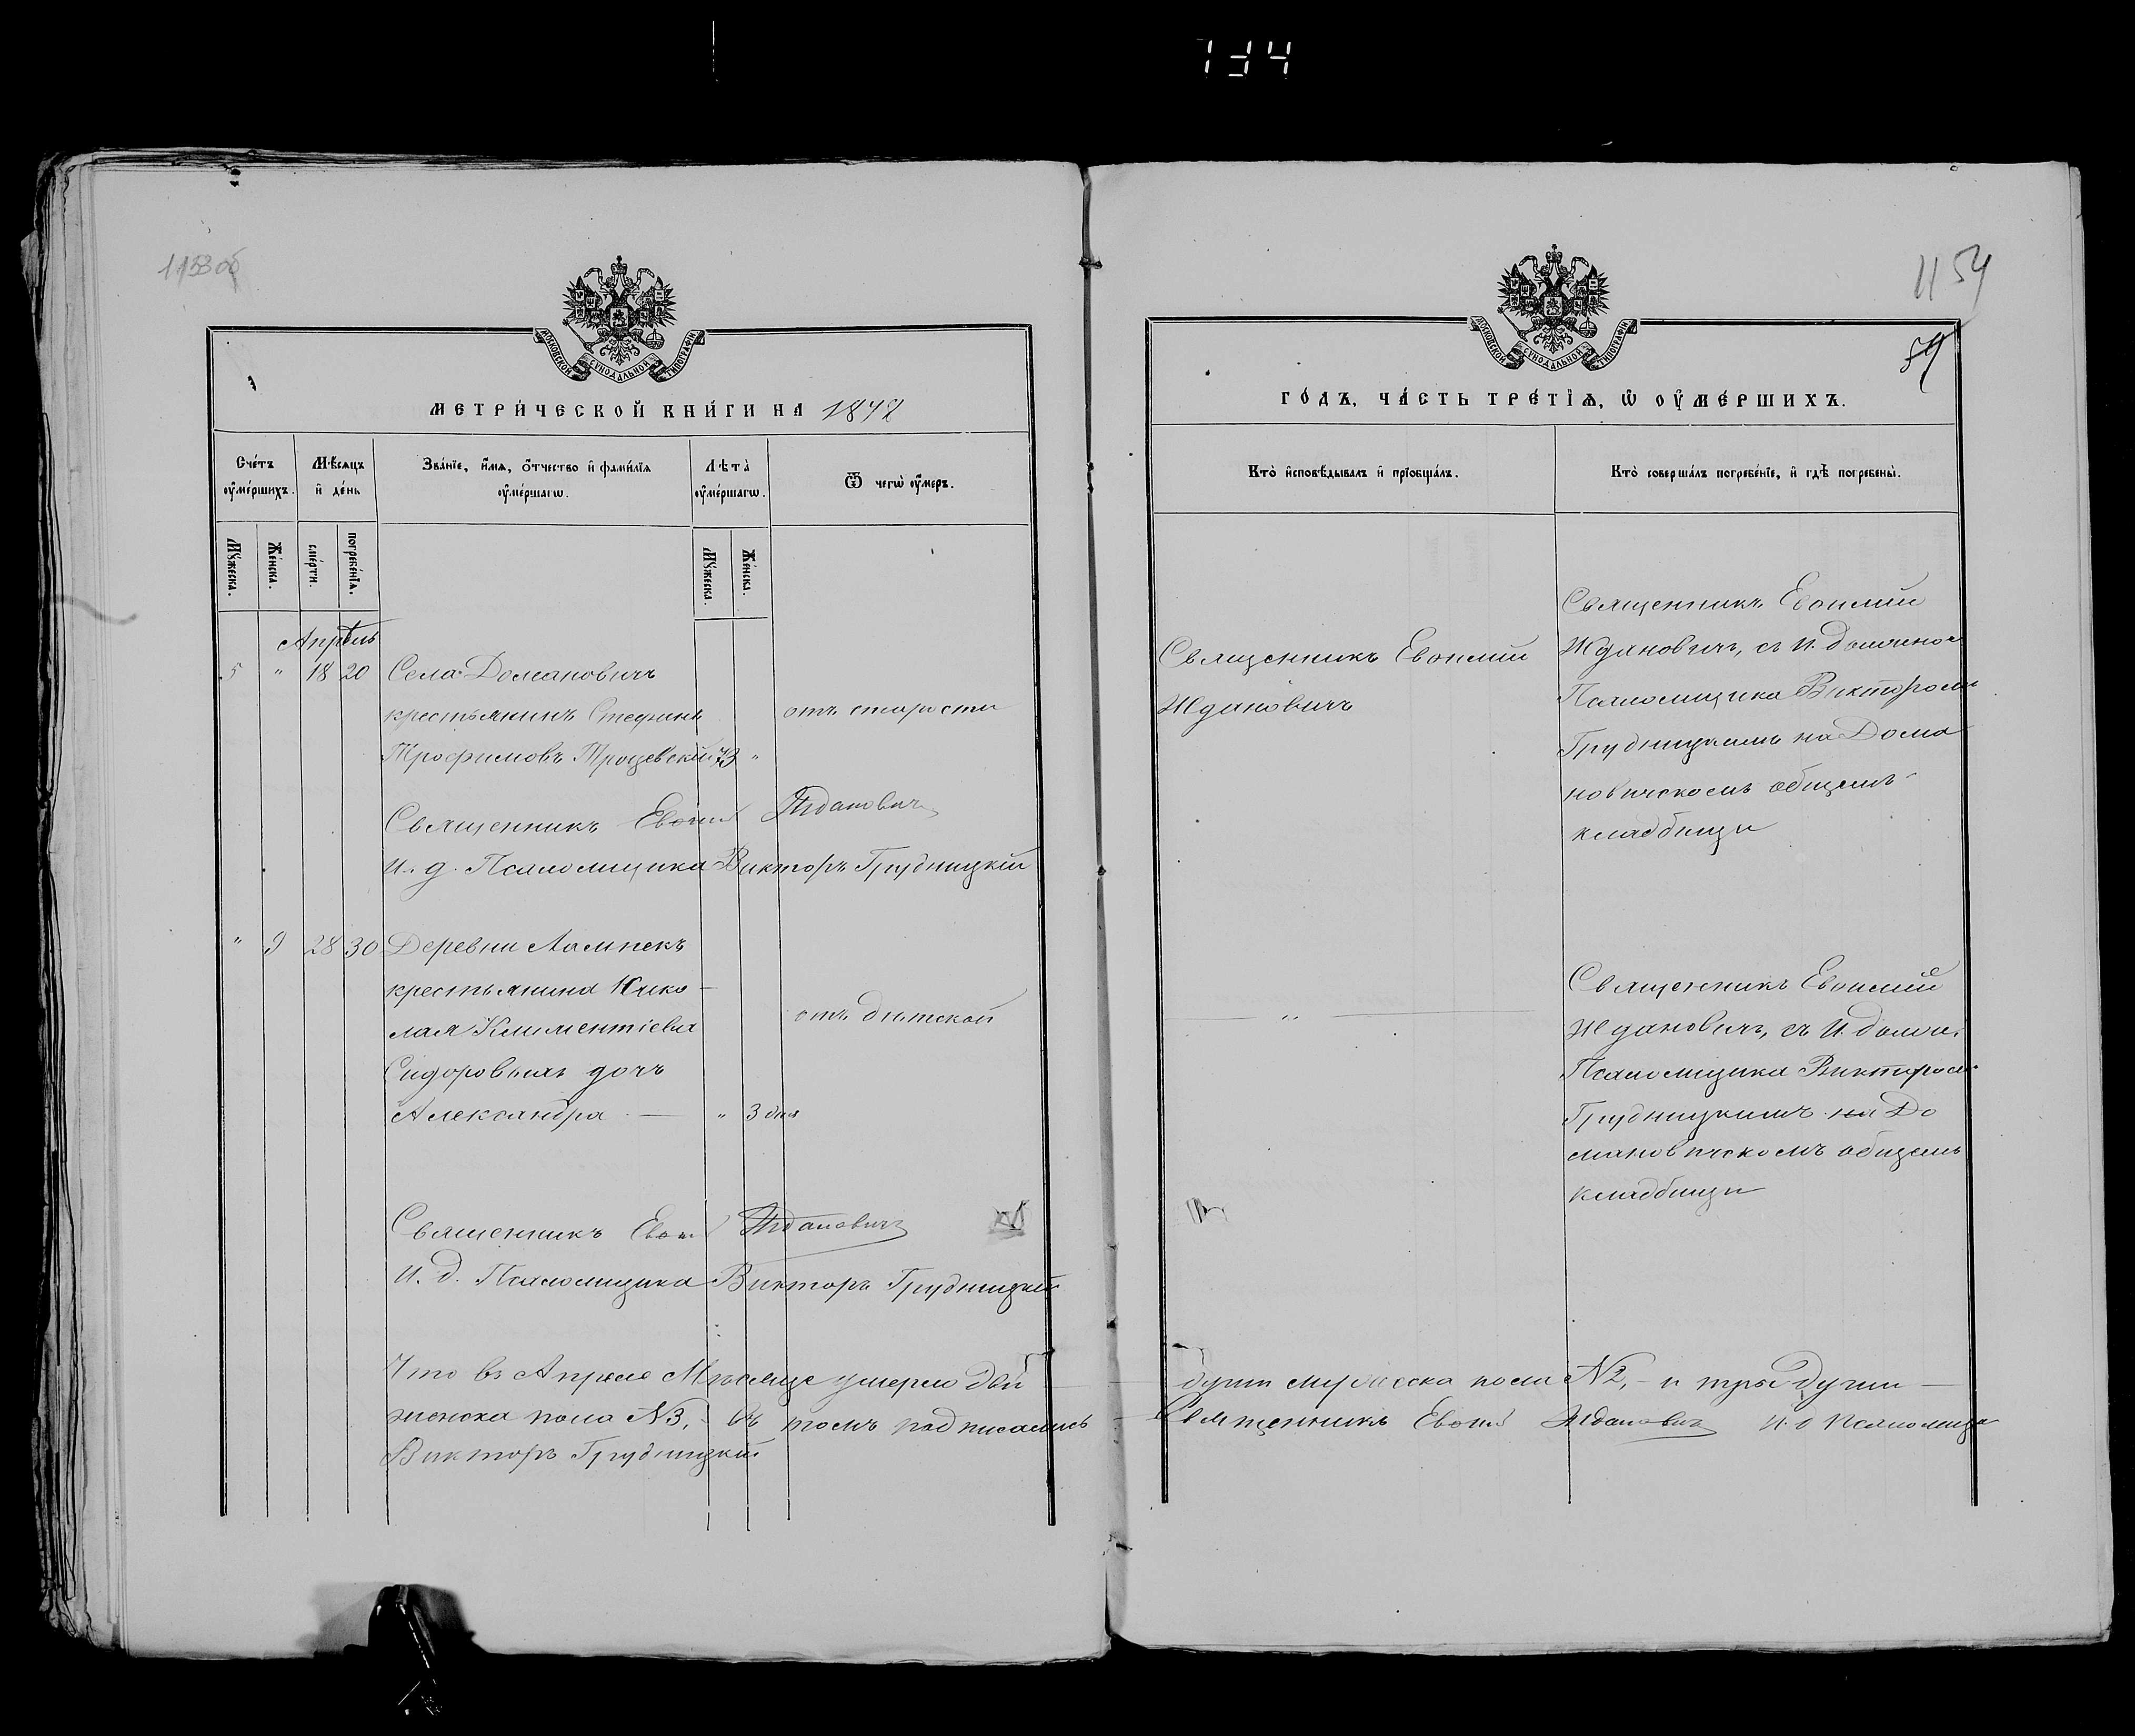 134
1153об
МОСКОВСКОЙ СѴНОДАЛЬНОЙ ТИПОГРАФІИ
МЕТРИ́ЧЕСКОЙ КНИ́ГИ НА 1872
Сче́тъ ᲂу҆ме́ршихъ.
Мѣ́сяцъ и҆ де́нь
Зва́нїе, и҆́мѧ, ѻ҆́тчество и҆ фами́лїѧ ᲂу҆ме́ршагѡ.
Лѣта̀ ᲂу҆ме́ршагѡ.
Ѿ чегѡ̀ ᲂу҆́меръ.
Мꙋ́жеска.
Же́нска.
сме́рти.
погребе́нїѧ.
Мꙋ́жеска.
Же́нска.
Апрѣль
5 " 18 20 Села Домановичъ
крестьянинъ Стефанъ
отъ старости
Трофимовъ Трацевскій 73 "
Священникъ Евѳимій Ждановичъ
И. д. Псаломщика Викторъ Грудницкій
" 9 28 30 Деревни Лампекъ
крестьянина Нико-
лая Климентіева
отъ дѣтской
Сидоровича дочь
Александра — " 3 дня
Священникъ Евѳимій Ждановичъ
И. д. Псаломщика Викторъ Грудницкій
Что въ Апрѣлѣ Мѣсяце умерло двѣ
женска пола №3, - въ томъ подписались
Викторъ Грудницкій
1154
59
МОСКОВСКОЙ СѴНОДАЛЬНОЙ ТИПОГРАФІИ
ГО́ДЪ, ЧА́СТЬ ТРЕ́ТЇѦ, Ѡ҆ ОУ҆МЕ́РШИХЪ.
Кто̀ и҆сповѣ́дывалъ и҆ прїобща́лъ.
Кто̀ соверша́лъ погребе́нїе, и҆ гдѣ̀ погребены̀.
Священникъ Евѳимій
Ждановичъ
Священникъ Евѳимій
Ждановичъ, съ И. должно-
Псаломщика Викторомъ
Грудницкимъ на Дома
новичскомъ общемъ
кладбищи
— " —
Священникъ Евѳимій
Ждановичъ, съ И. должн.
Псаломщика Викторомъ
Грудницкимъ на До
мановичскомъ общемъ
кладбищи
души мужеска пола №2, - и три души —
Священникъ Евѳимій Ждановичъ И. д Псаломщи